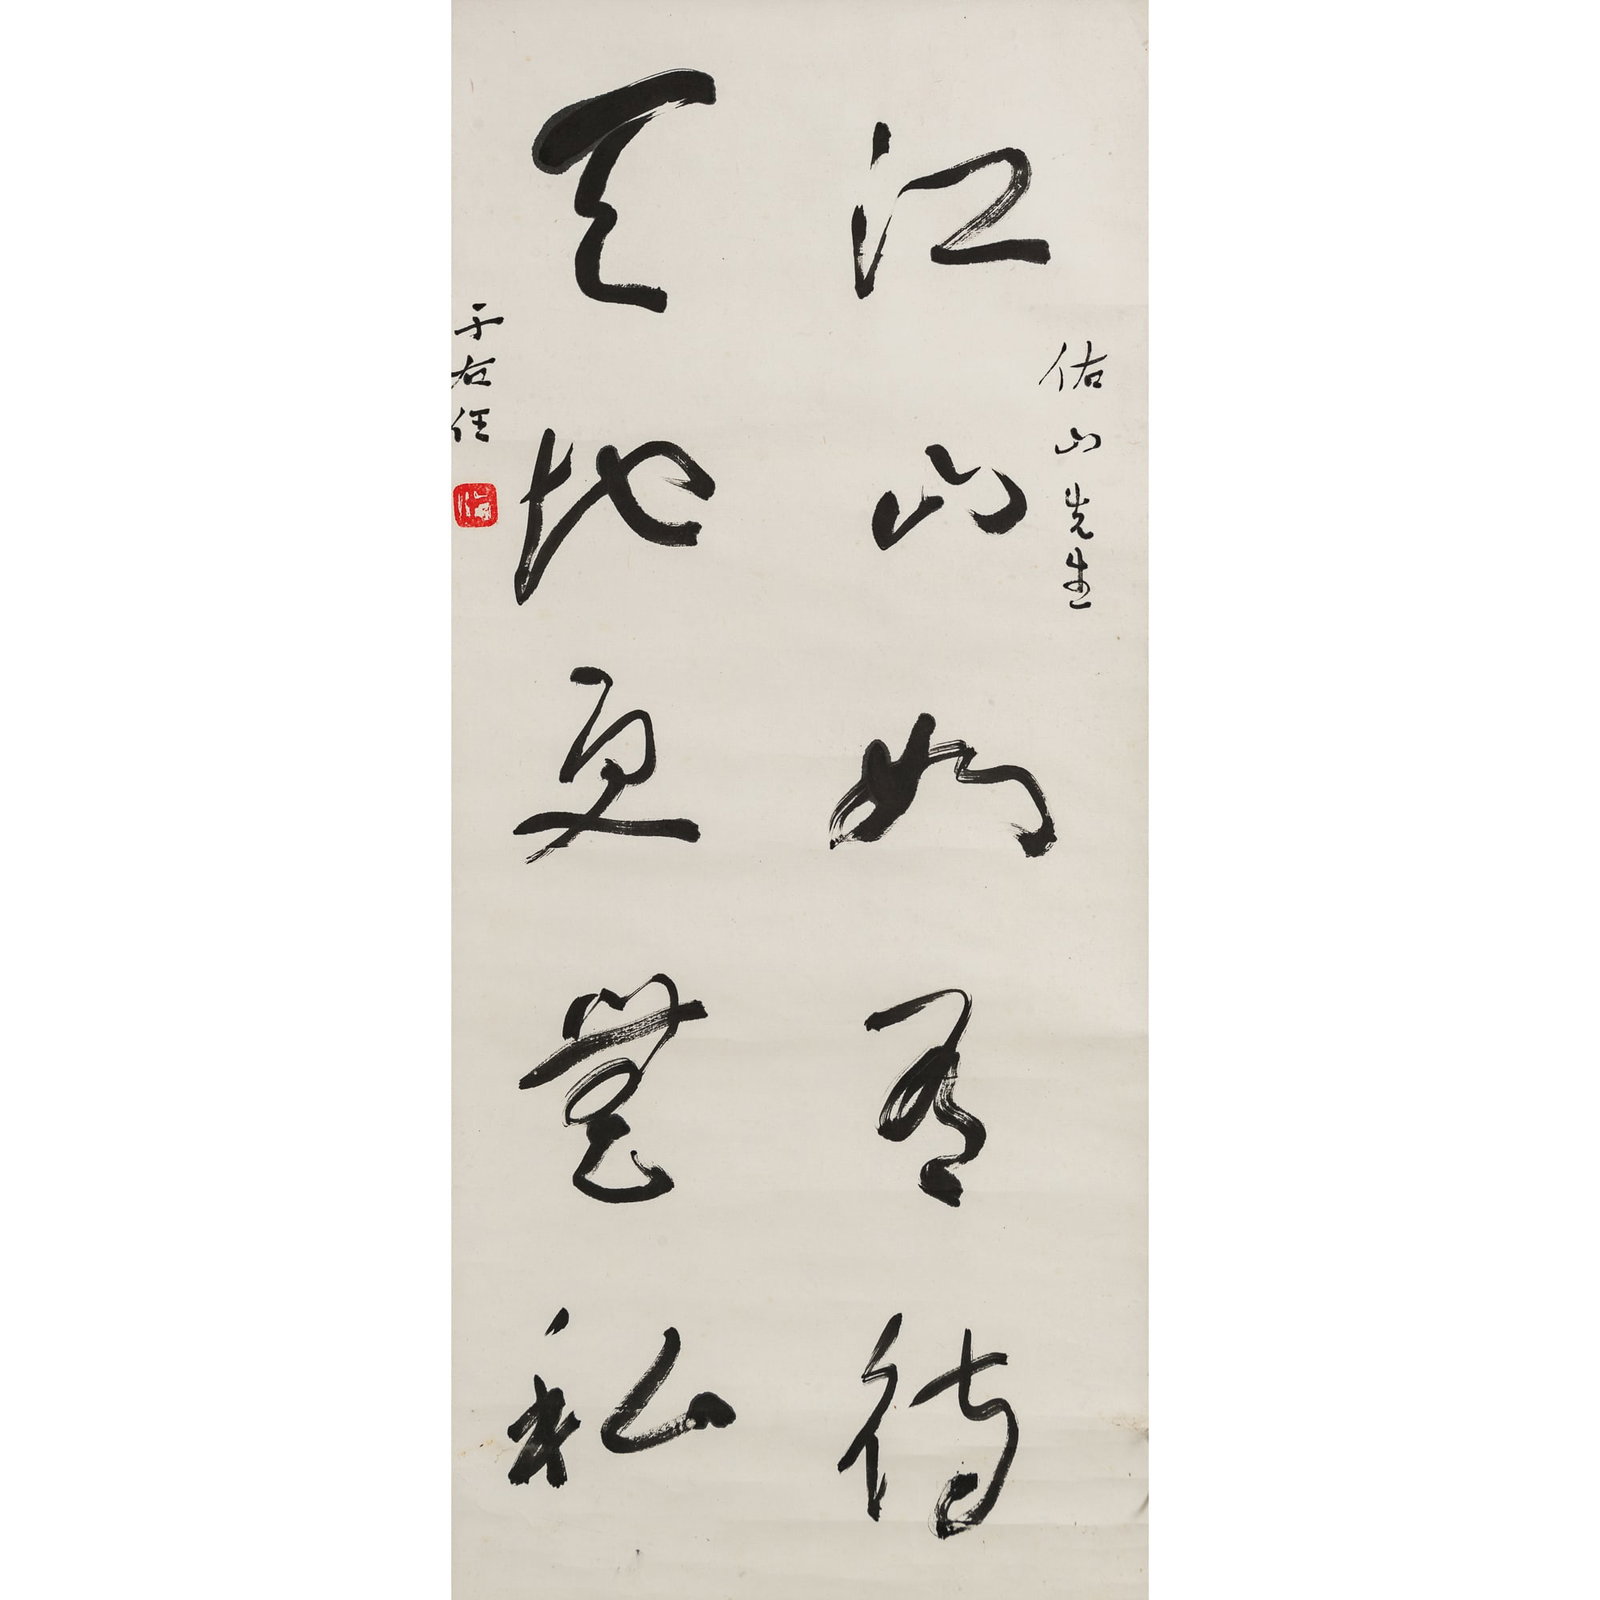 佑山先生
江山如有待
天地更無私
于右任